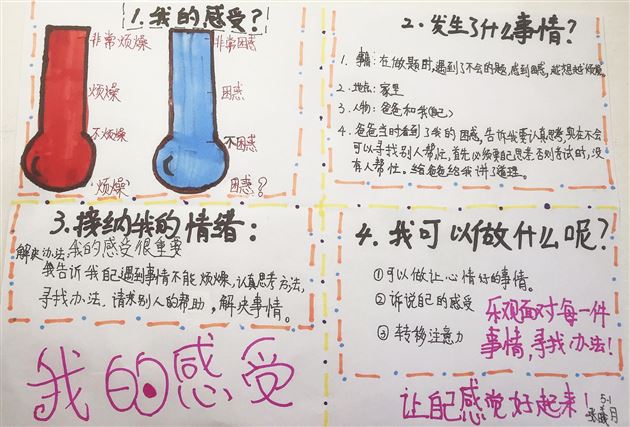 1.我的感受?
非常烦燥
烦燥
不烦燥
"烦燥"
非常困惑
困惑
不困惑
困惑?
2.发生了什么事情?
1. 事情:在做题时,遇到了不会的题,感到困惑,越想越烦燥。
2. 地点:家里
3. 人物:爸爸和我(自己)
4. 爸爸当时看到了我的困惑,告诉我要认真思考,实在不会
可以寻找别人帮忙,首先必须要自己思考,否则考试时,没
有人帮忙。爸爸给我讲了道理。
3.接纳我的情绪:
解决办法:我的感受很重要
我告诉我自己遇到事情不能烦燥,认真思考方法,
寻找办法。请求别人的帮助,解决事情。
我的感受
4.我可以做什么呢?
①可以做让心情好的事情。
②诉说自己的感受
③转移注意力
乐观面对每一件
事情,寻找办法!
让自己感觉好起来!
5-1